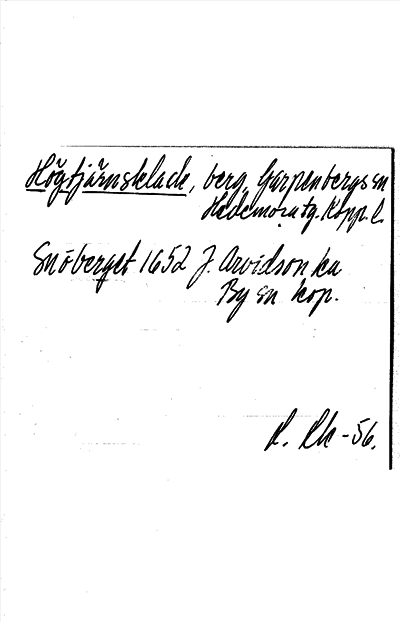 Högtjärnsklack, berg, Garpenbergs sn
Hedemora tg. Kopp. l.
Snöberget 1652 J. Arvidson ka
By sn kop.
R. Rh -56.